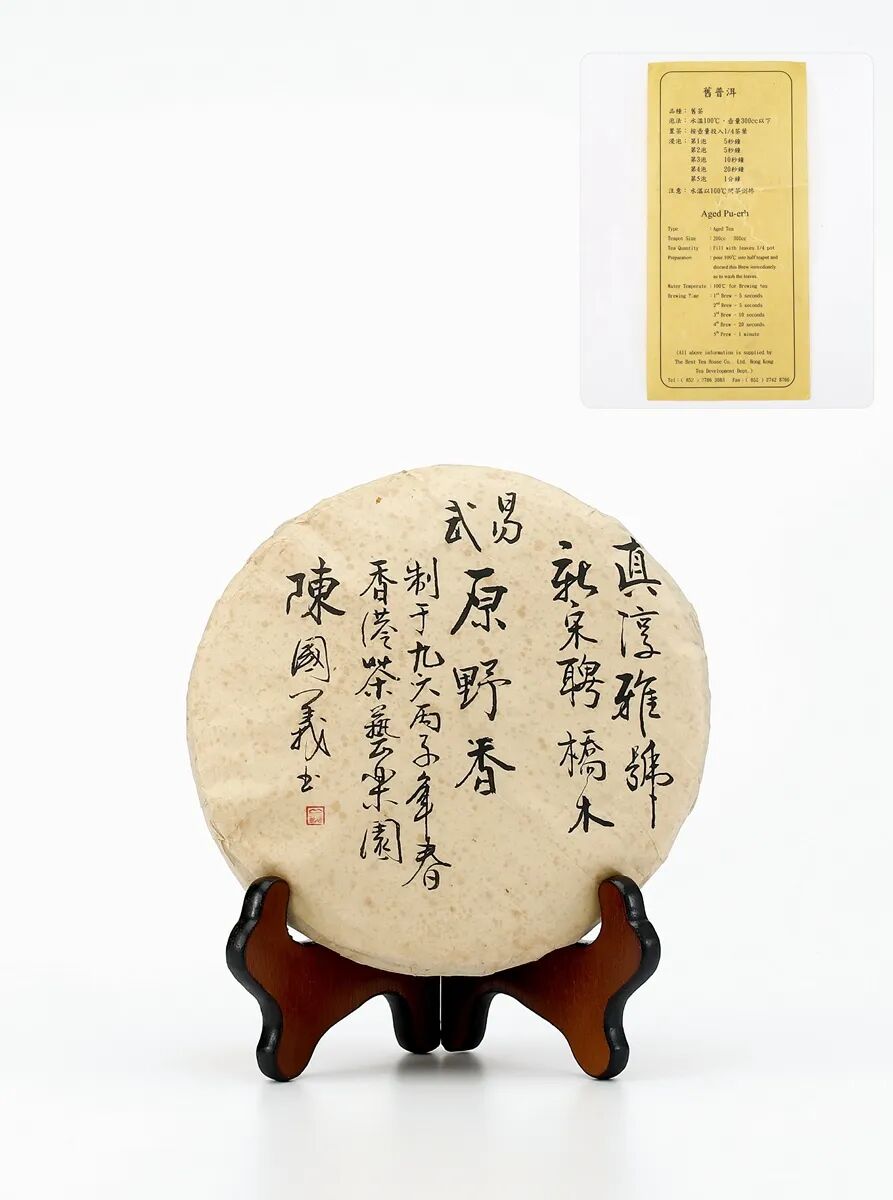 舊普洱
品種：舊茶
泡法：水溫100℃，壺量300cc以下
置茶：按壺量投入1/4茶葉
浸泡：第1泡 5秒鐘
第2泡 5秒鐘
第3泡 10秒鐘
第4泡 20秒鐘
第5泡 1分鐘
注意：水溫以100℃
Aged Pu-erh
Type : Aged Tea
Teapot Size : 200cc 300cc
Tea Quantity : Fill with leaves 1/4 pot
Preparation : pour 100℃ into half teapot and
discard this Brew immediately
as to wash the leaves.
Water Temperate : 100℃ for Brewing tea
Brewing Time : 1st Brew - 5 seconds
2nd Brew - 5 seconds
3rd Brew - 10 seconds
4th Brew - 20 seconds
5th Brew - 1 minute
(All above information is supplied by
The Best Tea House Co., Ltd. Hong Kong
Tea Development Dept.)
Tel : ( 852 ) 2786 3083 Fax : ( 852 ) 2742 8766
真淳雅號
宋聘橋木
易武
原野香
制于九六丙子年春
香港茶藝樂園
陳國義书